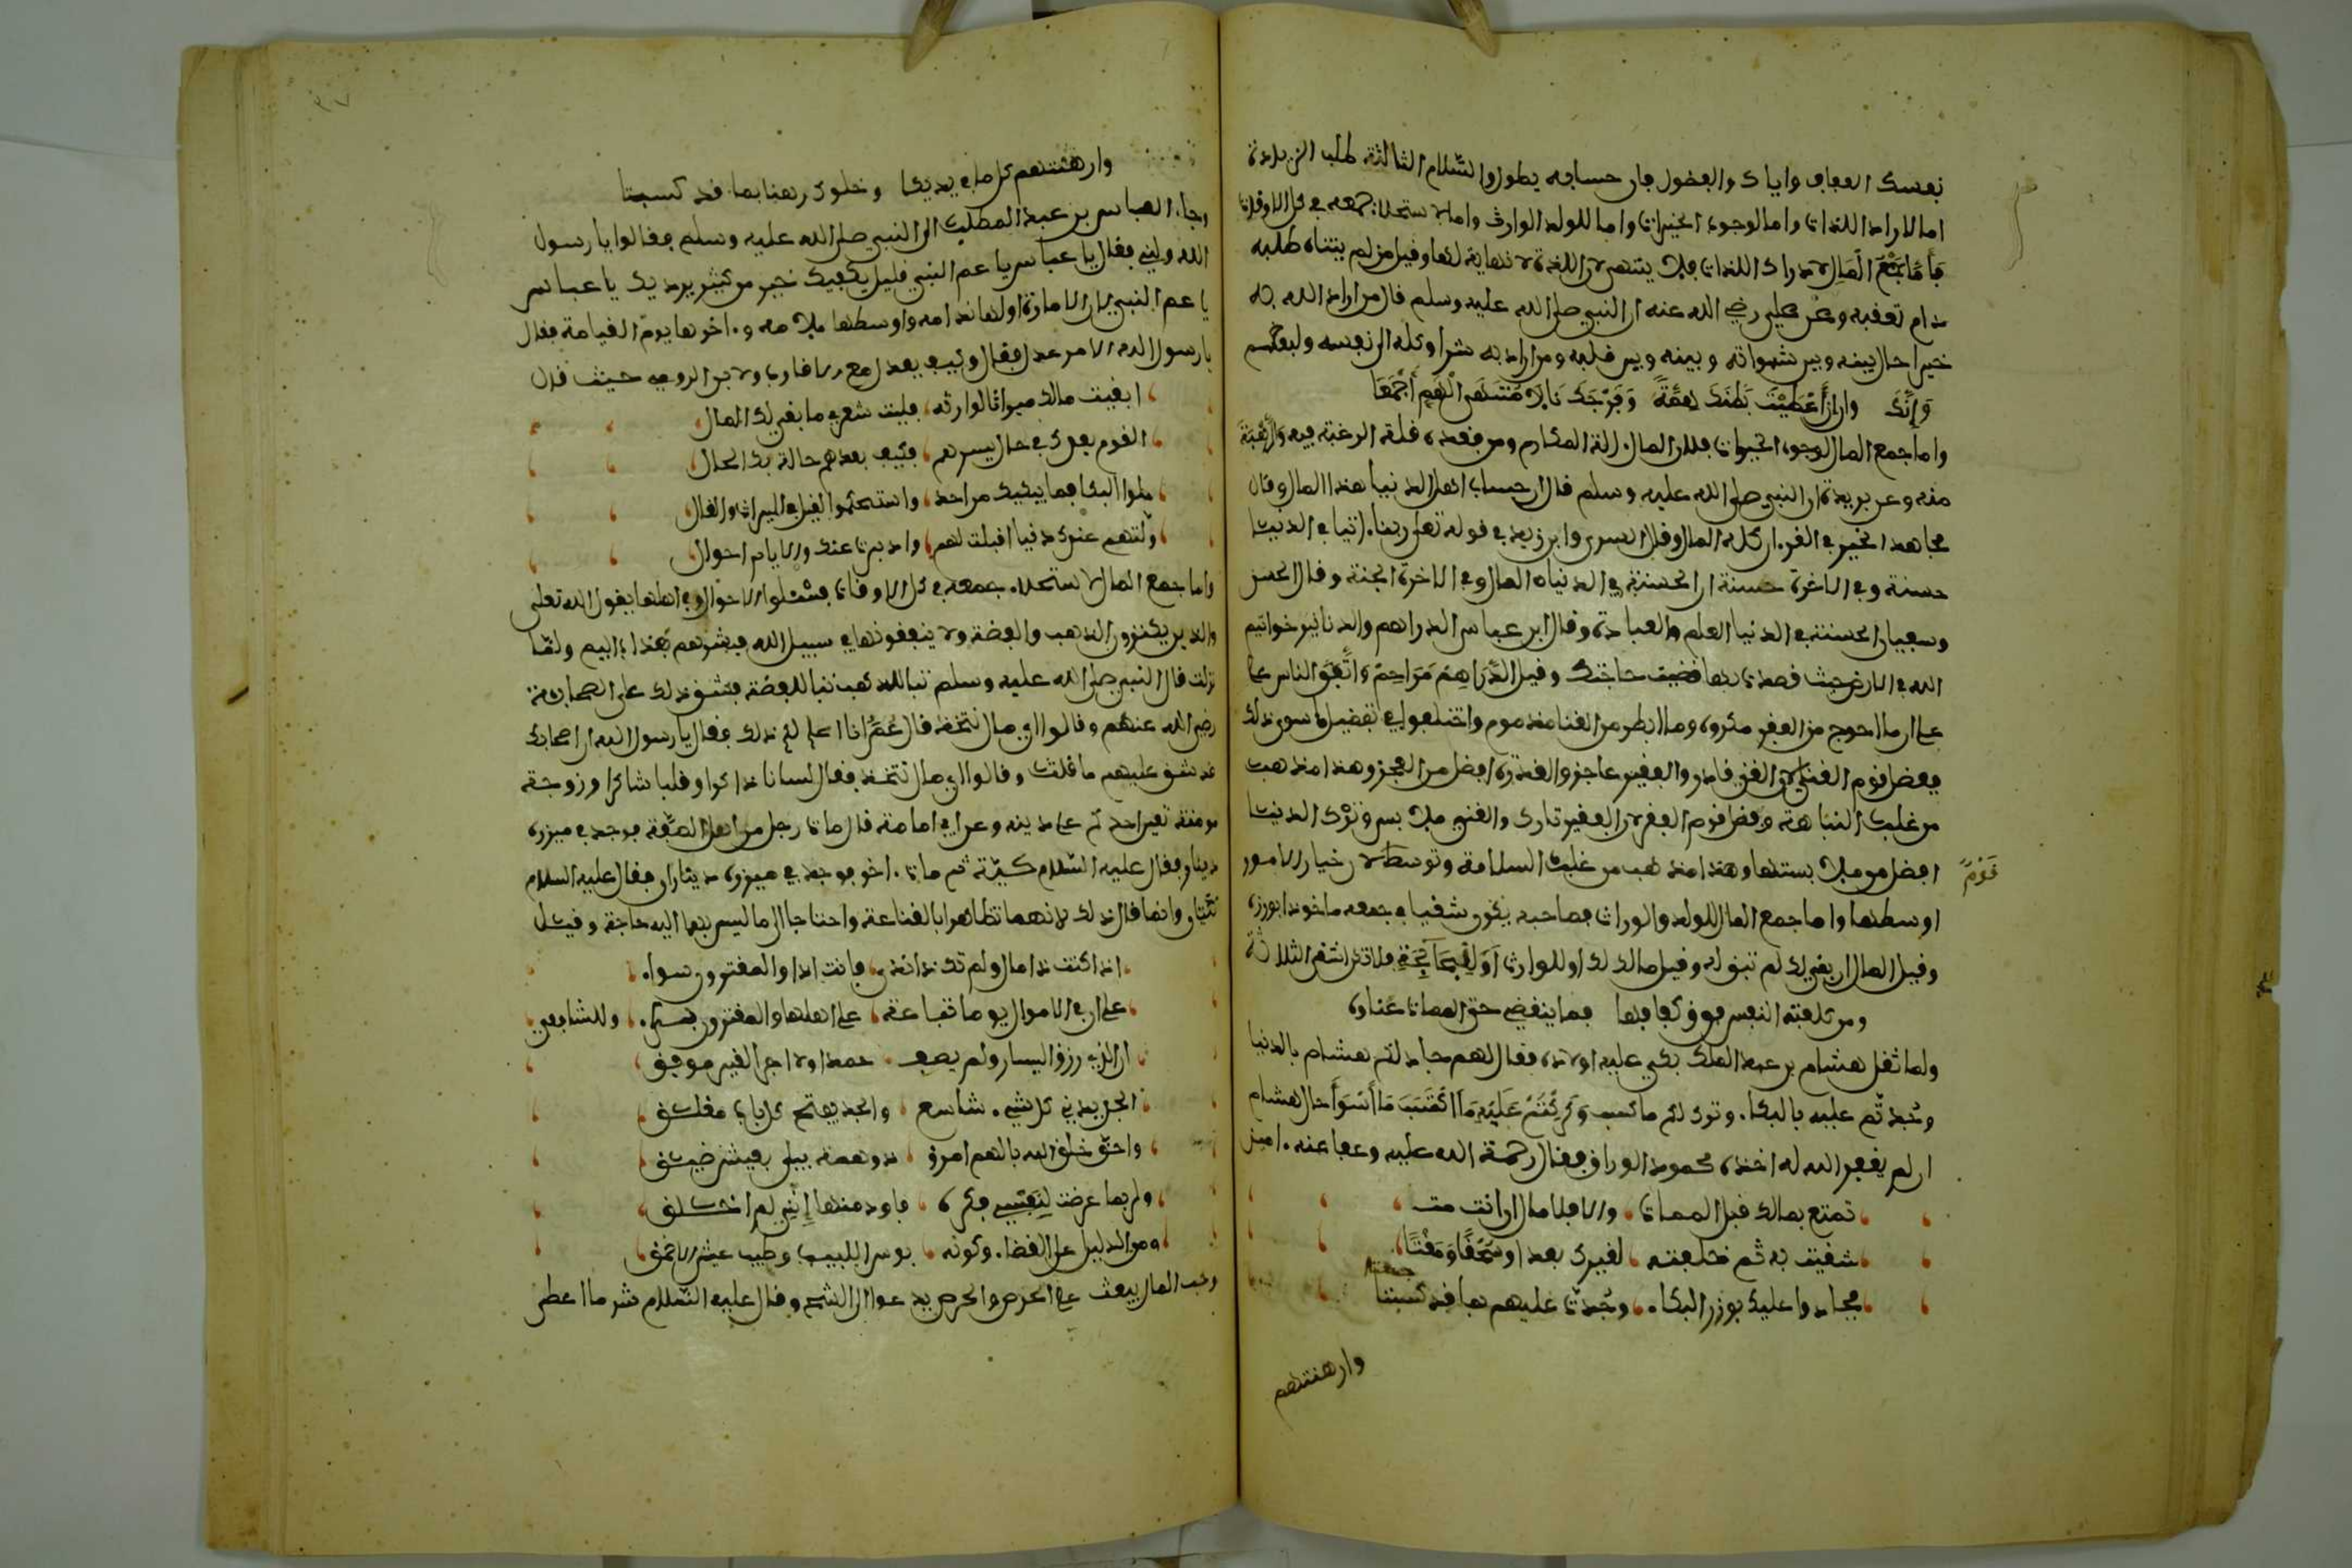 نفسك العفاف واياك والفضول فان حسابه يطول والسلام الثالثة طلب الزيادة
اما لايراد اللذات واما لوجوه الخيرات واما للولد الوارث واما لاستحلاء جمعه في كل الاوقات
فأما جمع المال لادراك اللذات فلا ينتهى لان اللذة لا نهاية لها وقيل من لم يتناه طلبه
دام تعقبه وعن علي رضي الله عنه ان النبي صلى الله عليه وسلم قال من اراد الله به
خيرا حال بينه وبين شهواته وبينه وبين قلبه ومن اراد به شرا وكله الى نفسه ولبعضهم
وَإِنَّكَ وان أَعْطَيْتَ بَطْنَكَ هَمَّهُ وَفَرْجَكَ نَالا مُنْتَهَى الْهَمِّ أَجْمَعَا
واما جمع المال لوجوه الخيرات فلان المال الة المكارم ومن فقده قلة الرغبة فيه والرهبة
منه وعن بريدة ان النبي صلى الله عليه وسلم قال ان حساب اهل الدنيا هذا المال وقال
مجاهد الخير في القرءان كله المال وقال السدى وابن زيد في قوله تعلى ربنا ءاتنا في الدنيا
حسنة وفي الاخرة حسنة ان الحسنة في الدنيا المال وفي الاخرة الجنة وقال الحسن
وسفيان الحسنة في الدنيا العلم والعبادة وقال ابن عباس الدراهم والدنانير خواتيم
الله في الارض حيث قصدت بها قضيت حاجتك وقيل الدَّرَاهِمُ مَرَاحِمُ وَاتَّفَقَ الناس على
على ان ما احوج من الفقر مكروه وما ابطر من الغنا مذموم واختلفوا في تفضيل ما سوى ذلك
ففضل قوم الغنا لان الغنى قادر والفقير عاجز والقدرة افضل من العجز وهذا مذهب
من غلب النباهة وفضل قوم الفقر لان الفقير تارك والغني ملابس وترك الدنيا
قَوْمٌ
افضل من ملابستها وهذا مذهب من غلب السلامة وتوسط لان خيار الامور
اوسطها واما جمع المال للولد والوراث فصاحبه يكون شقيا في جمعه ماخوذا بوزره
وقيل المال ان بقي لك لم تبق له وقيل مالك لك او للوارث أَوْ لِلْجَائِحَةِ فلا تكن اشقى الثلاثة
ومن كلفته النفس فوق كفافها فما ينقضي حتى الممات عناوه
ولما ثقل هشام بن عبد الملك بكى عليه اولاده فقال لهم جاد لكم هشام بالدنيا
وجُدتم عليه بالبكاء وترك لكم ما كسب وَتَرَكْتُمْ عَلَيْهِ مَا اكْتَسَبَ مَا أَسْوَأَ حال هشام
ان لم يغفر الله له اخذه محمود الوراق فقال رحمة الله عليه وعفا عنه ءامين
تمتع بمالك قبل الممات والا فلا مال ان انت مت
شقيت به ثم خلفته لغيرك بعدا وَسُحْقًا وَمَقْتًا
فجادوا عليك بوزر البكاء وجُدْتَ عليهم بما قد كسبتا
جمعتا
وارهنتهم
وارهنتهم كل ما في يديكا وخلوك رهنا بما قد كسبتا
وجاء العباس بن عبد المطلب الى النبي صلى الله عليه وسلم فقال يا رسول
الله ولني فقال يا عباس يا عم النبي قليل يكفيك خير من كثير يرديك يا عباس
يا عم النبي ان الامارة اولها ندامه واوسطها ملامه وءاخرها يوم القيامة فقال
يا رسول الله الا من عدل فقال وكيف يعدل مع الاقارب ولابن الرومي حيث قال
ابقيت مالك ميراثا لوارثه فليت شعري ما بقي لك المال
القوم بعدك في حال يسرهم فكيف بعدهم حالة بك الحال
ملوا البكا فما يبكيك من احد واستحكم القيل في الميراث والقال
ولتهم عنك دنيا اقبلت لهم وادبرت عنك والايام احوال
واما جمع المال لاستحلاء جمعه في كل الاوقات الاحوال وفي اهلها يقول الله تعلى
والذين يكنزون الذهب والفضة ولا ينفقونها في سبيل الله فبشرهم بعذاب اليم ولما
نزلت قال النبي صلى الله عليه وسلم تبا للذهب تبا للفضة فشق ذلك على الصحابة
رضي الله عنهم وقالوا اي مال نتخذ قال عُمَرُ انا اعلم لكم ذلك فقال يا رسول الله ان اصحابك
قد شق عليهم ما قلت وقالوا اي مال نتخذ فقال لسانا ذاكرا وقلبا شاكرا وزوجة
مومنة تعين احدكم على دينه وعن ابي امامة قال مات رجل من اهل الصُّفة فوجد في ميزره
دينار فقال عليه السلام كيّة ثم مات ءاخر فوجد في ميزره ديناران فقال عليه السلام
كيّتان وانما قال ذلك لانهما تظاهرا بالقناعة واحتاجا الى ما ليس بهما اليه حاجة وقيل
اذا كنت ذا مال ولم تك ذا ندى فانت اذا والمقترون سواء
على ان في الاموال يوما تباعة على اهلها والمقترون براء وللشافعي
ان الذي رزق اليسار ولم يصب حمدا ولا اجرا لغير موفق
الجد يدني كل شيء شاسع والجد يفتح كل باب مغلق
واحق خلق الله بالهم امرؤ ذو همة يبلى بعيش ضيق
ولربما عرضت لِنَفْسِي فكرة فاود منها إِنَّنِي لم اخلق
ومن الدليل على القضاء وكونه بوس اللبيب وطيب عيش الاحمق
وحب المال يبعث على الحرص والحرص يدعوا الى الشح وقال عليه السلام شر ما اعطى